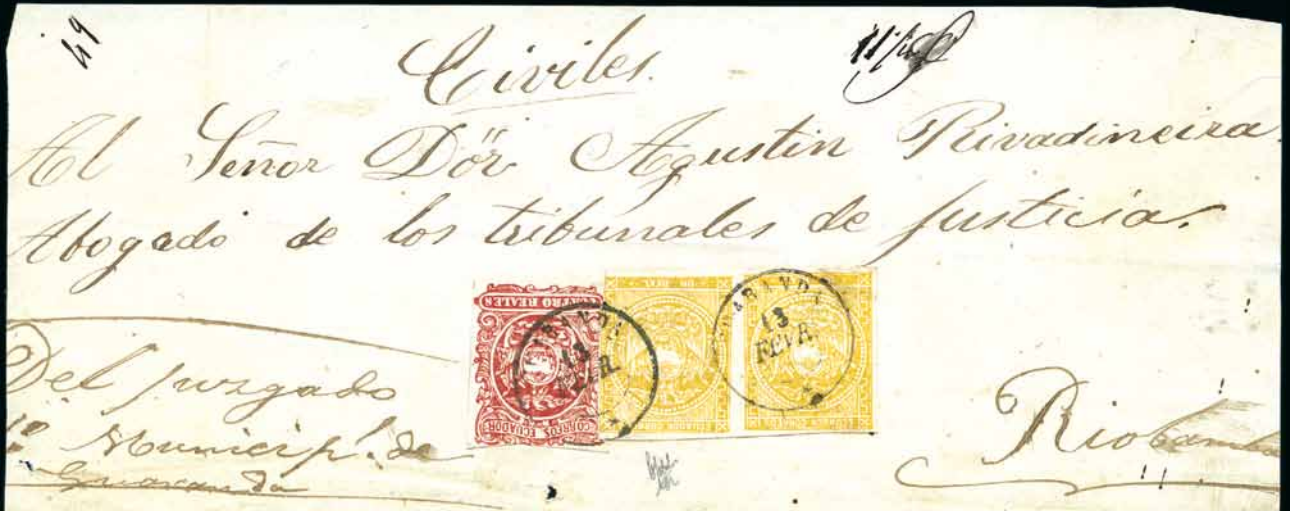 49
Civiles.
Al Señor Dör Agustin Rivadineira.
Abogado de los tribunales de justicia.
CUATRO REALES
CORREOS ECUADOR
UN REAL
ECUADOR CORREOS
GUARANDA
13
FEVR.
GUARANDA
13
FEVR.
Del juzgado
1º Municipl. de
Guaranda
Riobamba